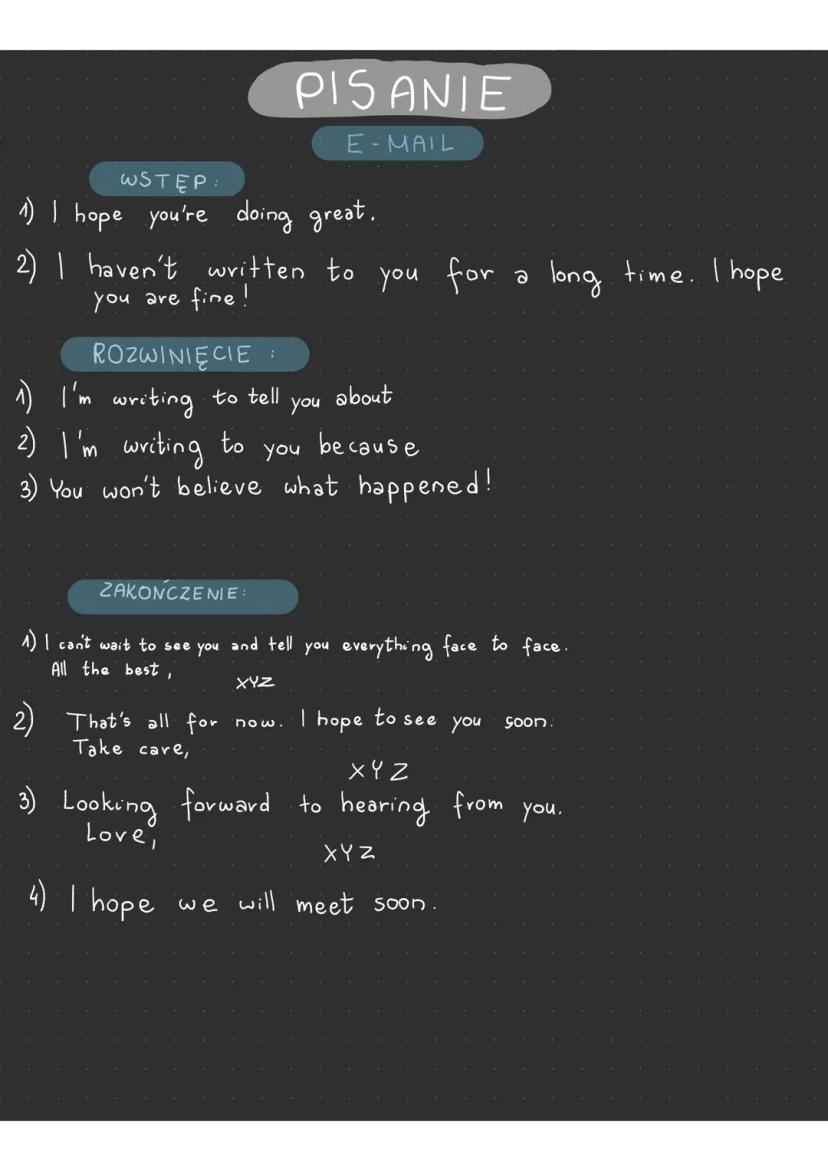 PISANIE
E-MAIL
WSTĘP:
1) I hope you're doing great.
2) I haven't written to you for a long time. I hope
you are fine!
ROZWINIĘCIE :
1) I'm writing to tell you about
2) I'm writing to you because
3) You won't believe what happened!
ZAKOŃCZENIE:
1) I can't wait to see you and tell you everything face to face.
All the best,
XYZ
2) That's all for now. I hope to see you soon.
Take care,
XYZ
3) Looking forward to hearing from you.
Love,
XYZ
4) I hope we will meet soon.